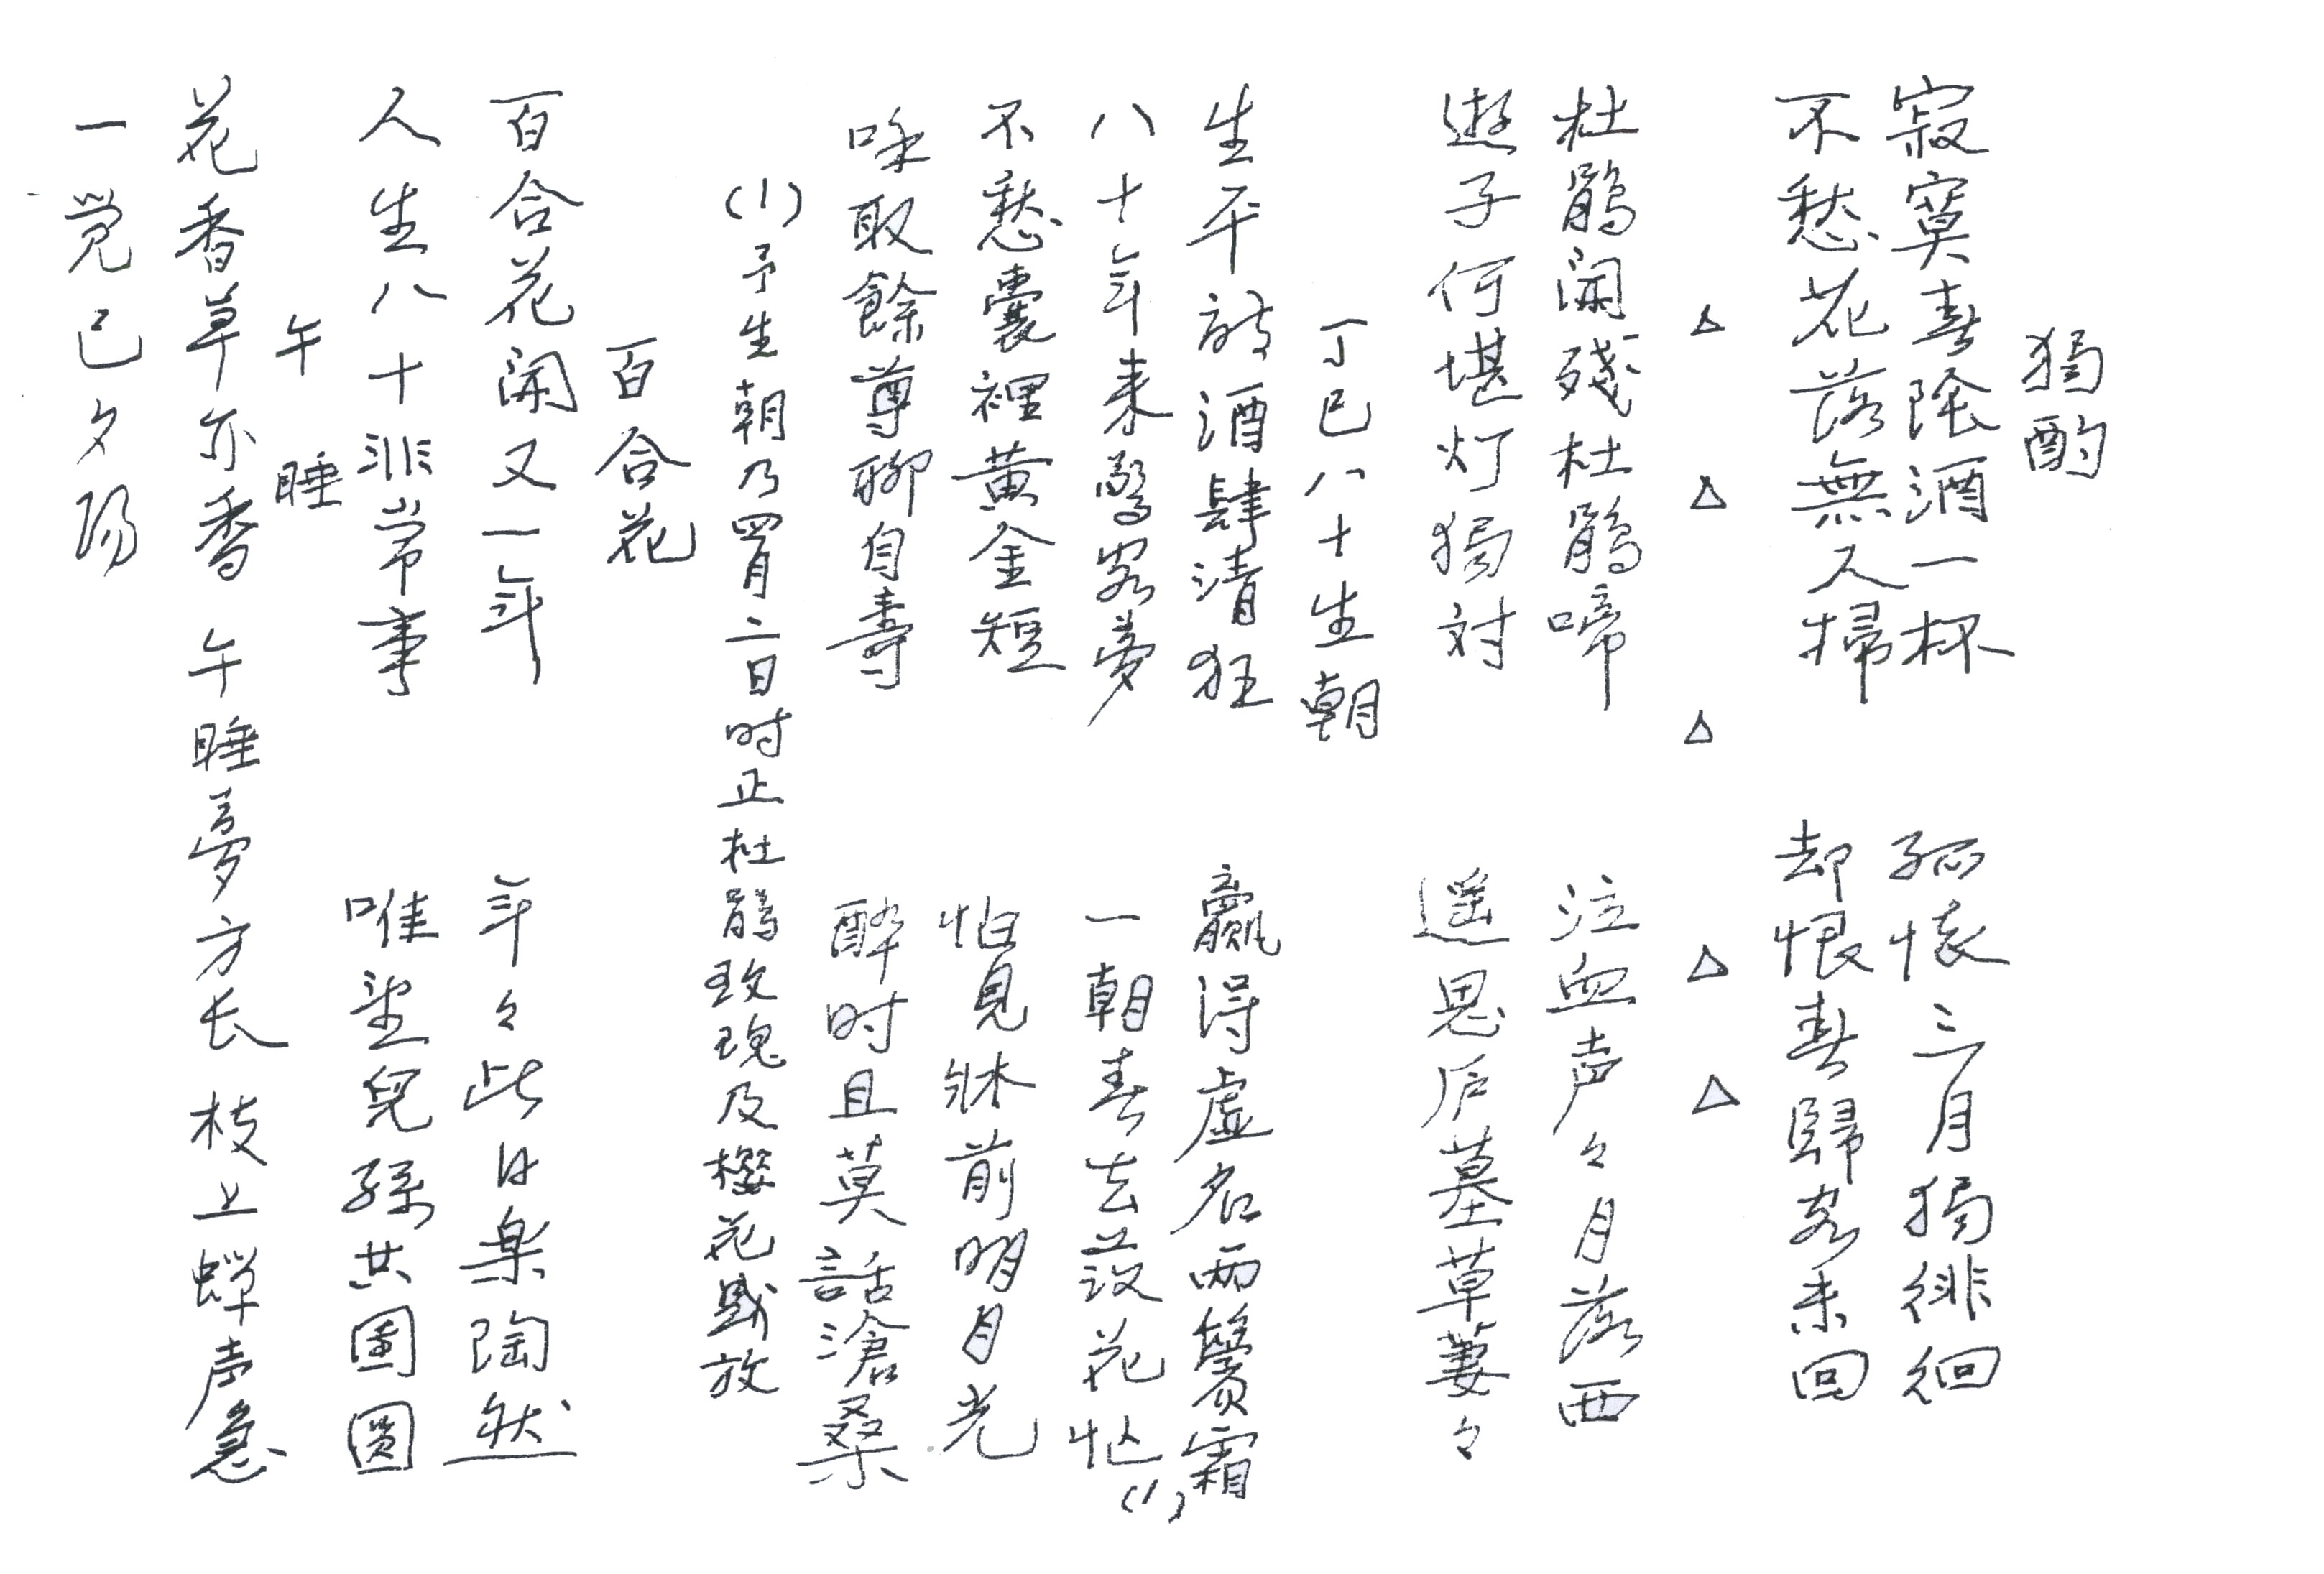 獨酌
寂寞春陰酒一杯 孤懷三月獨徘徊
不愁花落無人掃 却恨春歸客未回
△ △ △ △ △
杜鵑開殘杜鵑啼 泣血声々月落西
遊子何堪灯獨対 遥思戸墓草萋々
丁巳八十生朝
生平詩酒肆清狂 贏得虚名両鬢霜
八十年来驚客夢 一朝春去葬花忙(1)
不愁囊裡黄金短 怕見牀前明月光
咏取餘尊聊自寿 酔时且莫話滄桑
(1)予生朝乃四月二日时正杜鵑玫瑰及櫻花盛放
百合花
百合花開又一年 年々此日楽陶然
人生八十非常事 唯望兒孫共團圓
午睡
花香草亦香 午睡夢方長 枝上蝉声急
一覚已夕陽